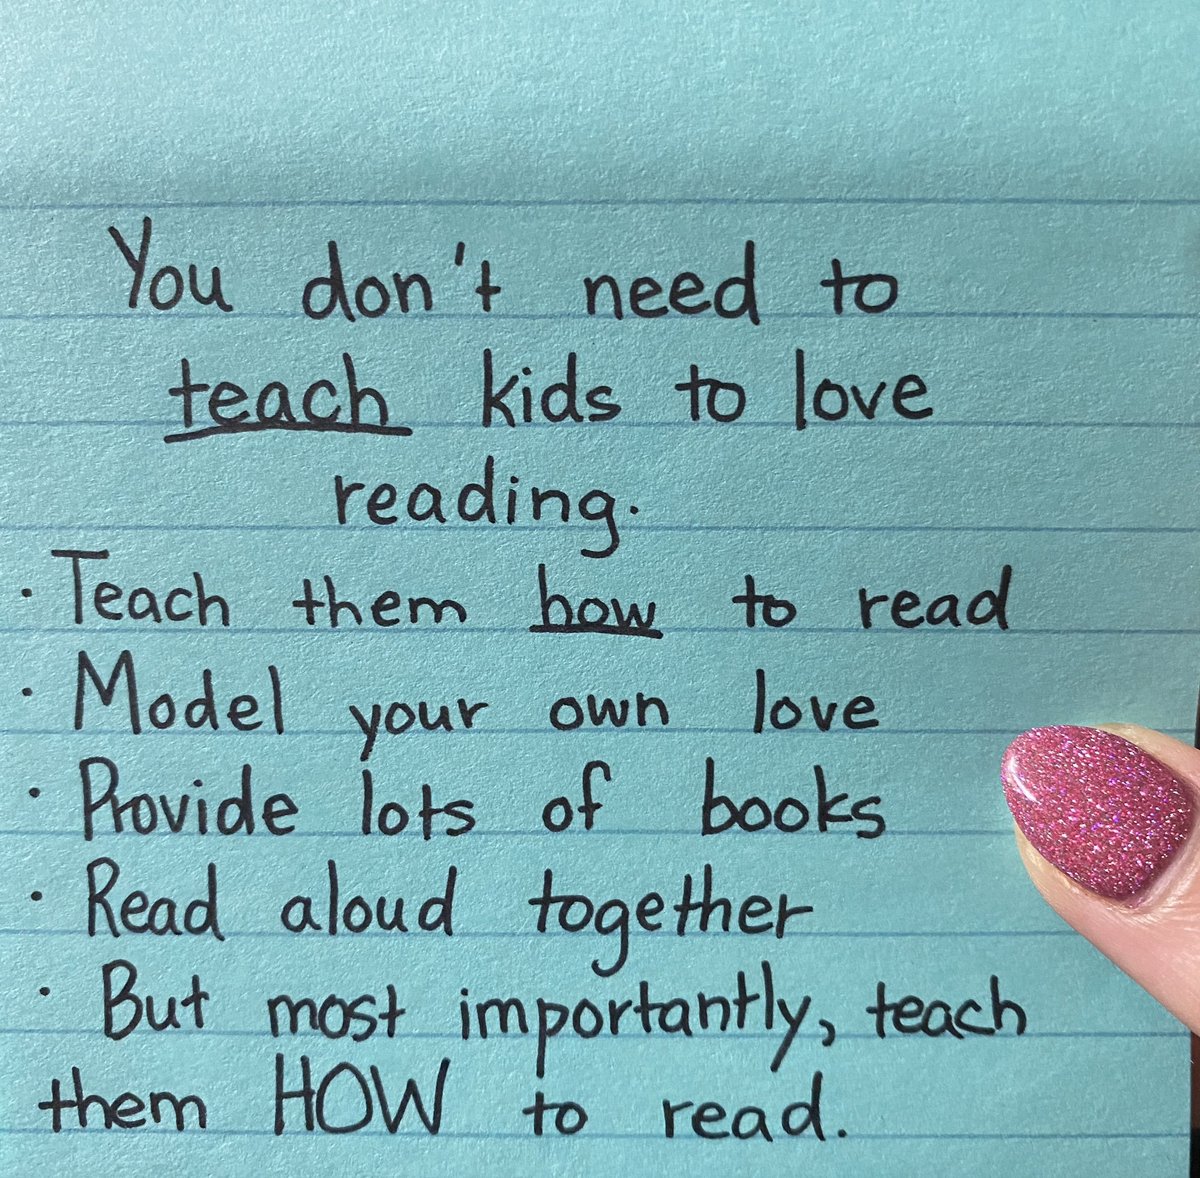 You don't need to
teach kids to love
reading.
· Teach them how to read
· Model your own love
· Provide lots of books
· Read aloud together
· But most importantly, teach
them HOW to read.